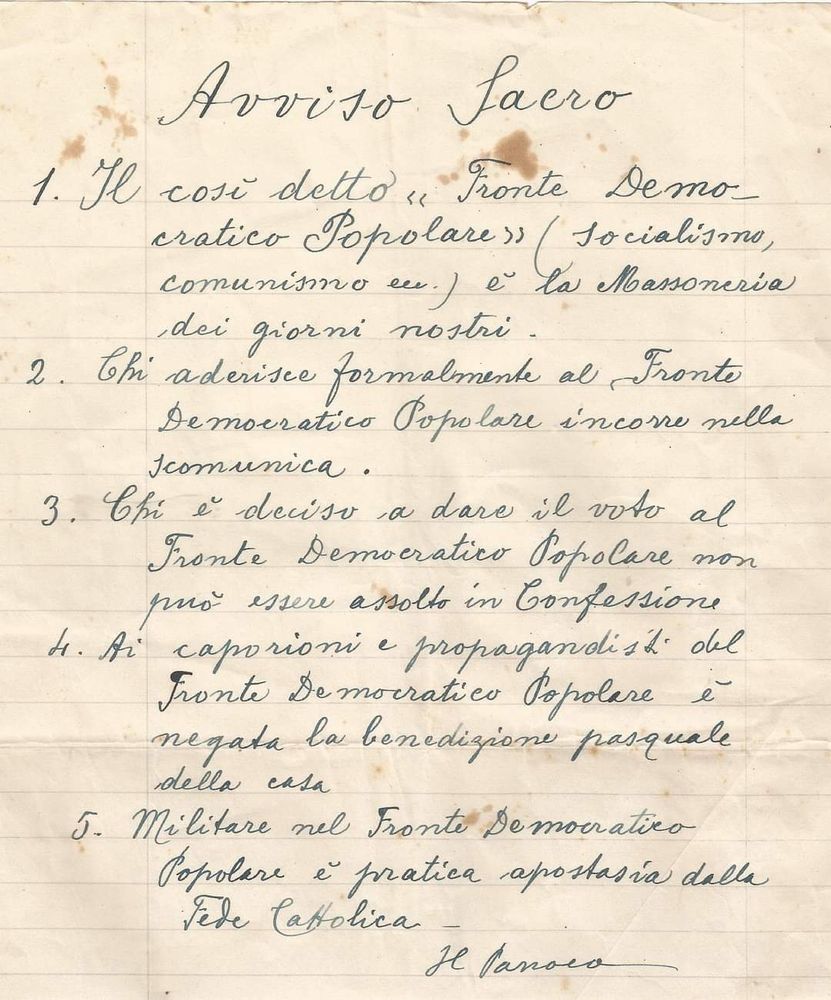 Avviso Sacro
1. Il così detto « Fronte Demo-
cratico Popolare» ( socialismo,
comunismo ecc.) è la Massoneria
dei giorni nostri.
2. Chi aderisce formalmente al Fronte
Democratico Popolare incorre nella
scomunica.
3. Chi è deciso a dare il voto al
Fronte Democratico Popolare non
può essere assolto in Confessione
4. Ai caporioni e propagandisti del
Fronte Democratico Popolare è
negata la benedizione pasquale
della casa
5. Militare nel Fronte Democratico
Popolare è pratica apostasia dalla
Fede Cattolica -
Il Parroco